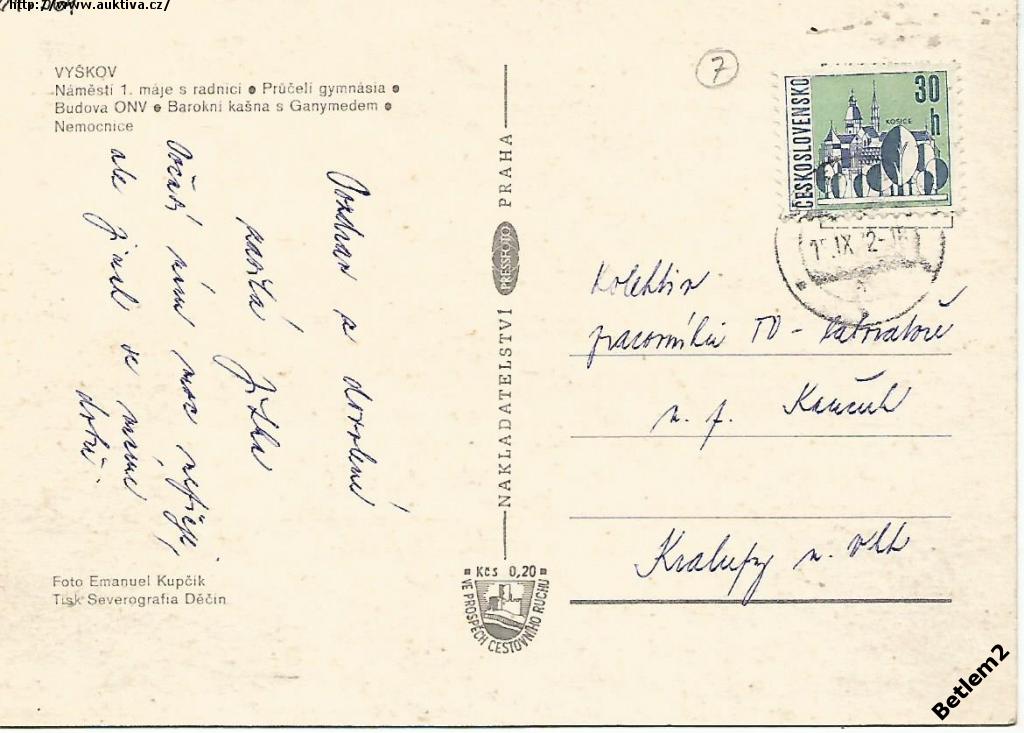 http://www.auktiva.cz/
VYŠKOV
Náměstí 1. máje s radnicí ● Průčelí gymnásia ●
Budova ONV ● Barokní kašna s Ganymedem ●
Nemocnice
Pozdrav z dovolené
posílá
Jitka
Počasí nám moc nepřeje,
ale jinak se máme
dobře.
Foto Emanuel Kupčík
Tisk Severografia Děčín
NAKLADATELSTVÍ PRESSFOTO PRAHA
Kčs 0,20
VE PROSPĚCH CESTOVNÍHO RUCHU
7
ČESKOSLOVENSKO
30
h
KOŠICE
IX
Kolektiv
pracovníků TO - Laboratoře
n. p. Kaučuk
Kralupy n. Vlt
Betlem2